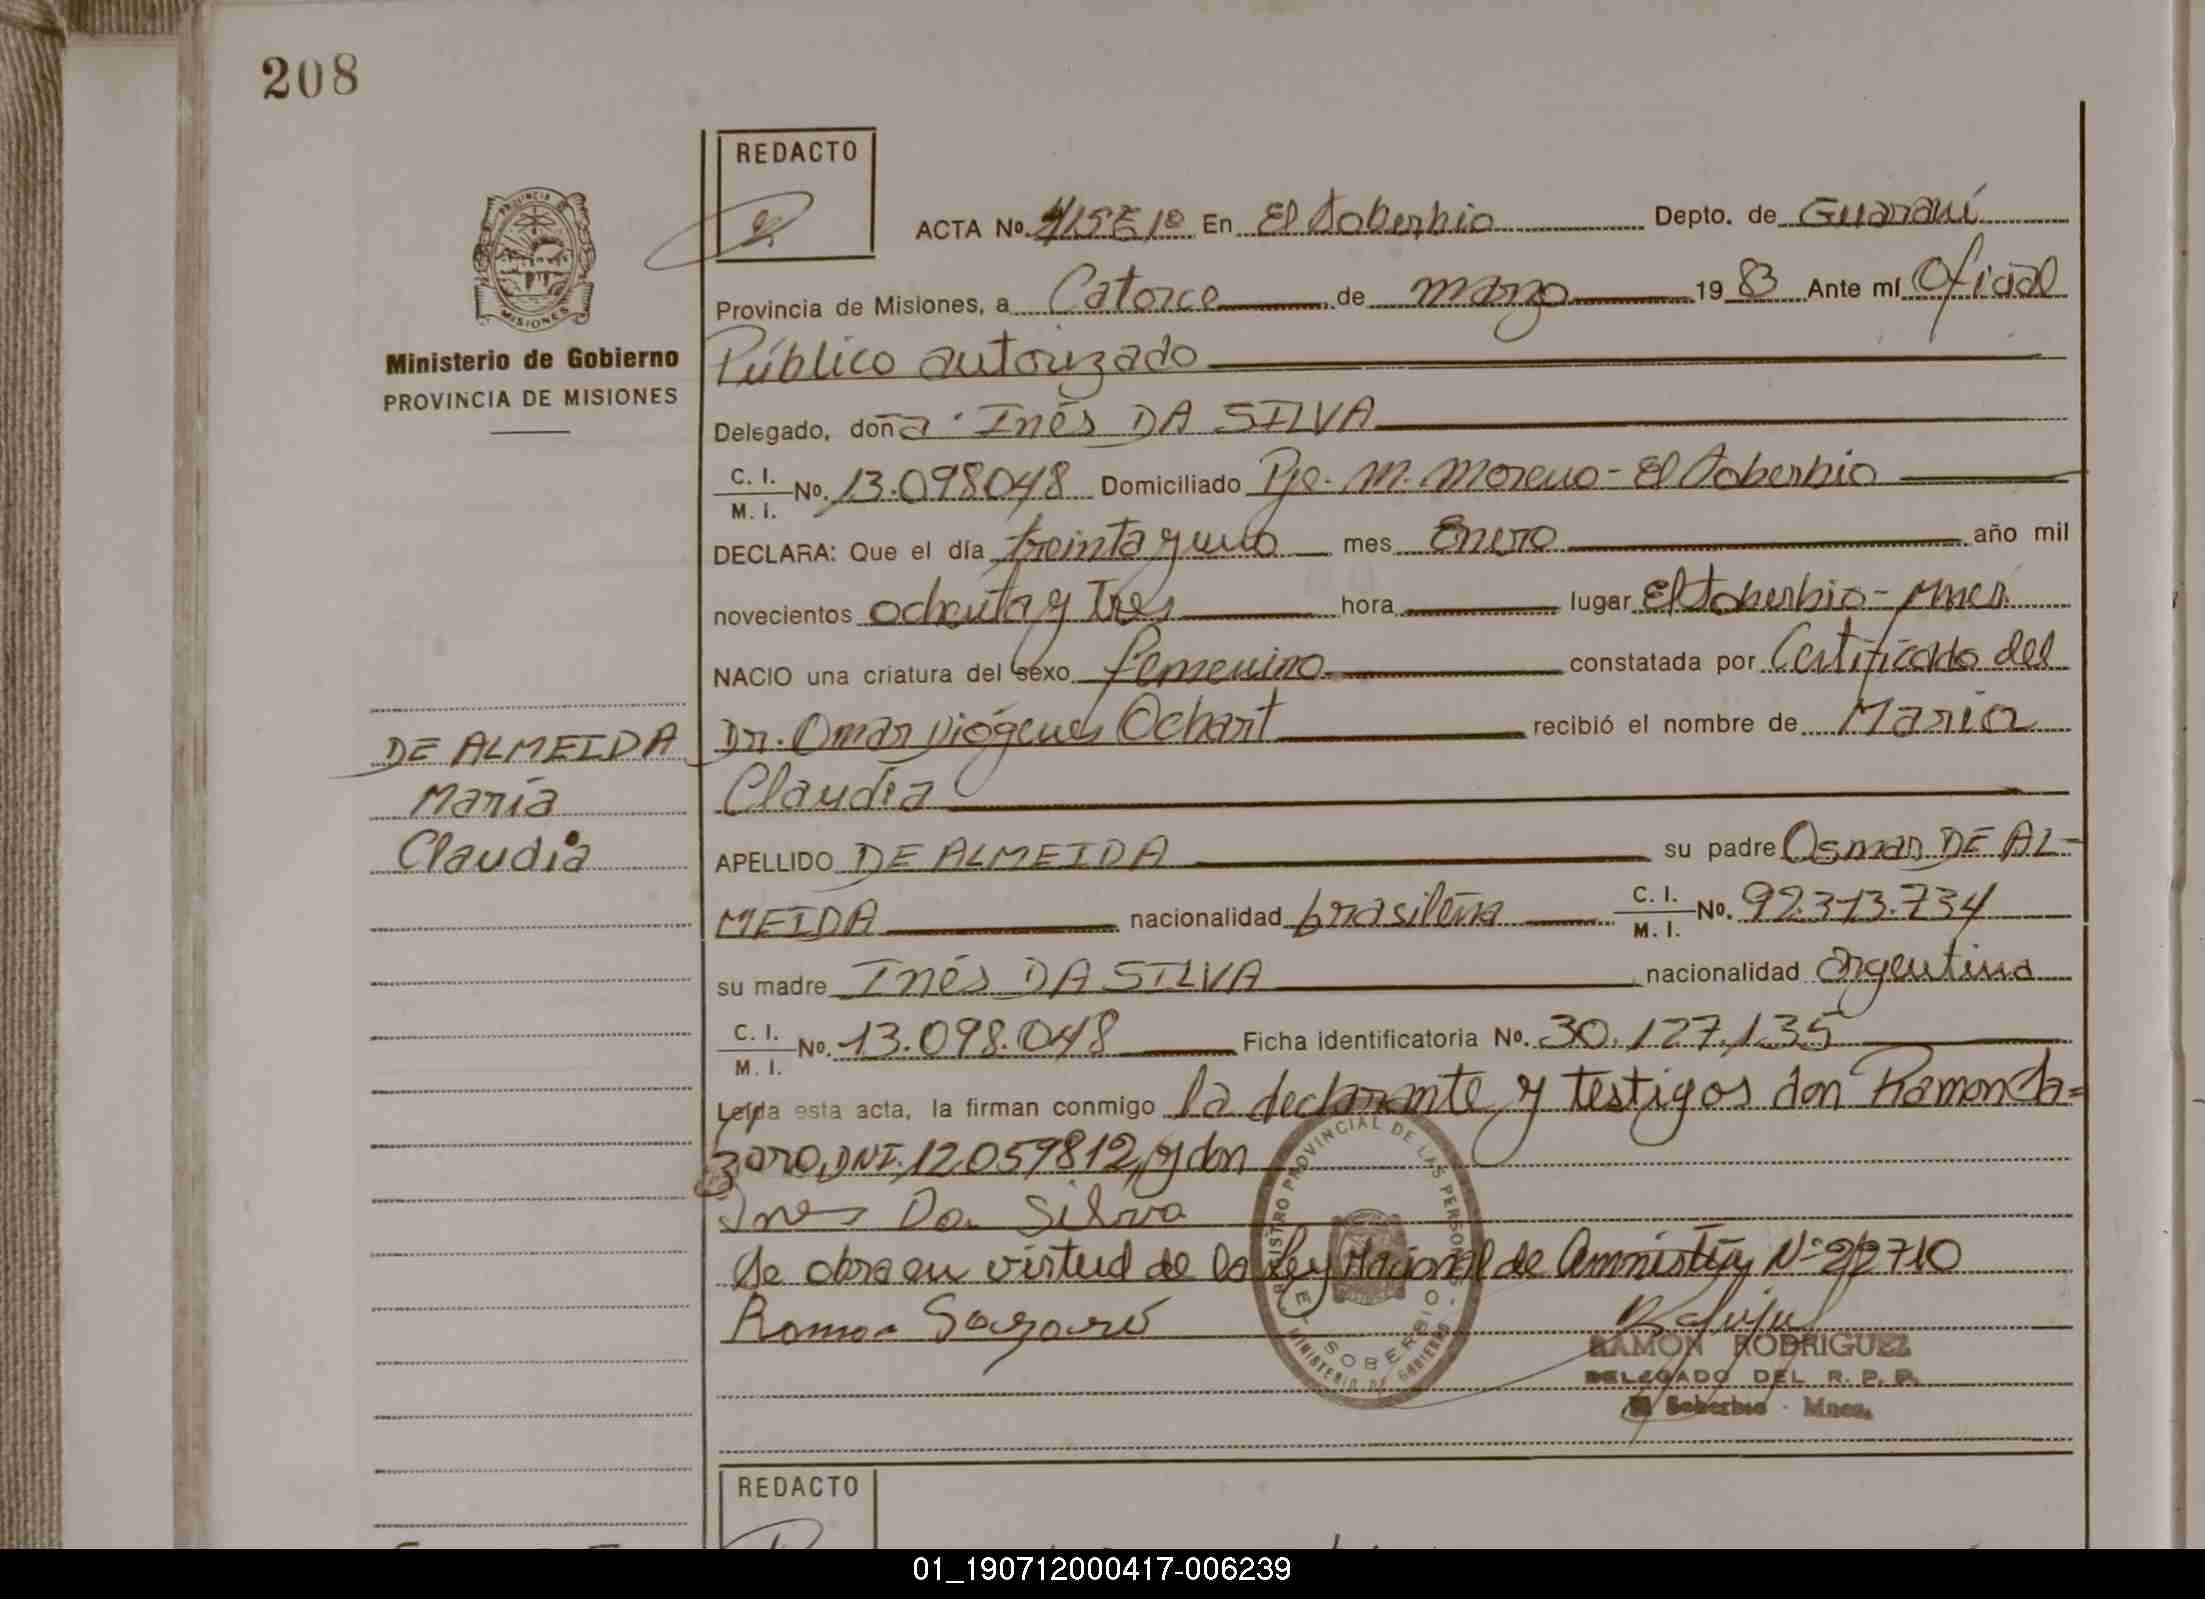 208
REDACTO
ACTA No. 415E1º En El Soberbio Depto. de Guaraní
Provincia de Misiones, a Catorce de marzo 1983 Ante mí Oficial
Público autorizado
PROVINCIA DE
MISIONES
Ministerio de Gobierno
PROVINCIA DE MISIONES
Delegado, doña Inés DA SILVA
C. I.
M. I. No. 13.098048 Domiciliado Pje. M. Moreno - El Soberbio
DECLARA: Que el día treinta y uno mes Enero año mil
novecientos ochenta y Tres hora lugar El Soberbio - Mnes.
NACIO una criatura del sexo femenino constatada por Certificado del
Dr. Omar Diógenes Ochart recibió el nombre de María
Claudia
DE ALMEIDA
María
Claudia
APELLIDO DE ALMEIDA su padre Osmar DE AL-
MEIDA nacionalidad brasileña C. I.
M. I. No. 92.313.734
su madre Inés DA SILVA nacionalidad argentina
C. I.
M. I. No. 13.098.048 Ficha identificatoria No. 30.127.135
Leída esta acta, la firman conmigo la declarante y testigos don Ramon
DNI. 12.059812, y don
Ines Da Silva
Se obra en virtud de la Ley Nacional de Amnistía Nº 22710
Ramon
REGISTRO PROVINCIAL DE LAS PERSONAS
EL SOBERBIO
MINISTERIO DE GOBIERNO
RAMON RODRIGUEZ
DELEGADO DEL R. P. P.
El Soberbio - Mnes.
REDACTO
01_190712000417-006239